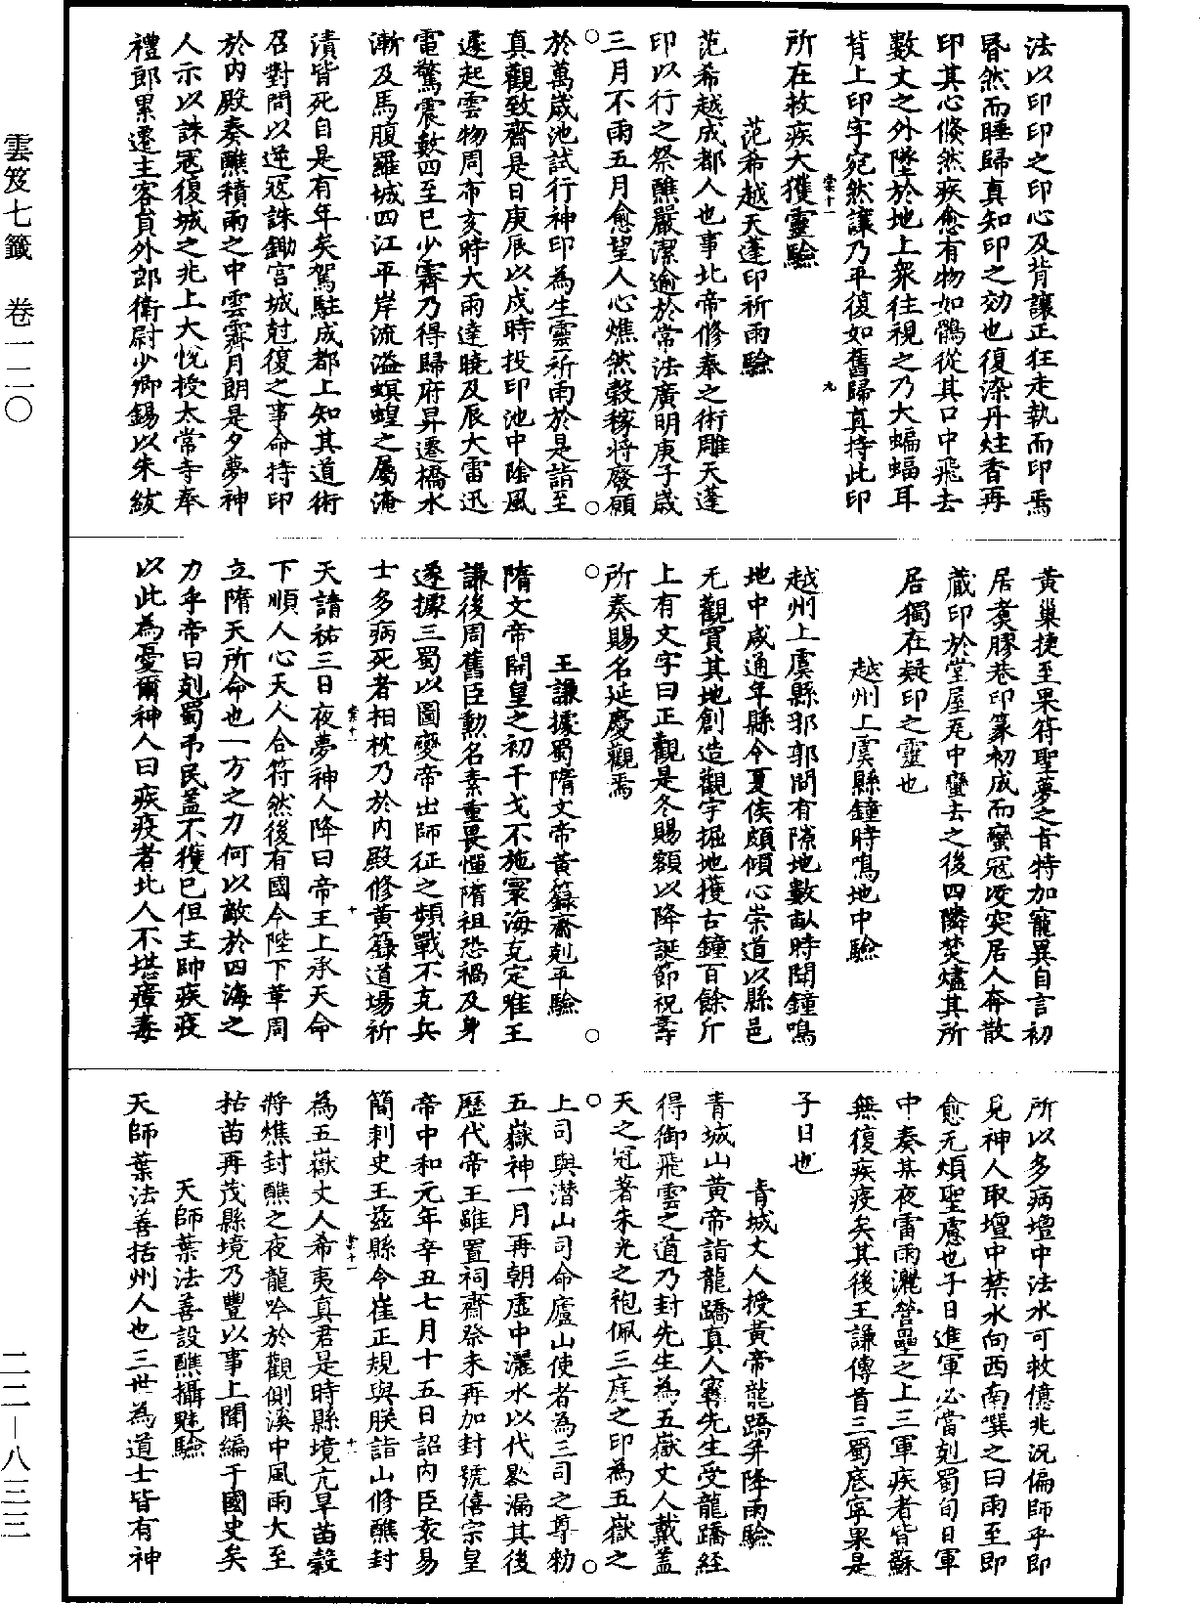 雲笈七籤　卷一二〇
二二—八三三
法以印印之印心及背讓正狂走執而印焉
昏然而睡歸真知印之効也復染丹炷香再
印其心倏然疾愈有物如鶻從其口中飛去
數丈之外墜於地上衆往視之乃大蝙蝠耳
背上印字宛然讓乃平復如舊歸真持此印
所在救疾大獲靈驗
范希越天蓬印祈雨驗
范希越成都人也事北帝修奉之術雕天蓬
印以行之祭醮嚴潔逾於常法廣明庚子歳
三月不雨五月愈望人心燋然穀稼將廢願
於萬歳池試行神印為生靈祈雨於是詣至
真觀致齋是日庚辰以戌時投印池中陰風
遽起雲物周布亥時大雨達曉及辰大雷迅
電驚震數四至巳少霽乃得歸府昇遷橋水
漸及馬腹羅城四江平岸流溢螟蝗之屬淹
漬皆死自是有年矣駕駐成都上知其道術
召對問以逆冦誅鋤宫城尅復之事命持印
於内殿奏醮積雨之中雲霽月朗是夕夢神
人示以誅冦復城之兆上大悅授太常寺奉
禮郎累遷主客員外郎衛尉少卿錫以朱紱
黄巢捷至果符聖夢之旨特加寵異自言初
居煮膠巷印篆初成而蠻冦凌突居人奔散
藏印於堂屋瓦中蠻去之後四隣焚燼其所
居獨在疑印之靈也
越州上虞縣鐘時鳴地中驗
越州上虞縣郛郭間有隙地數畝時聞鐘鳴
地中咸通年縣令夏侯頗傾心崇道以縣邑
无觀買其地創造觀宇掘地獲古鐘百餘斤
上有文字曰正觀是冬賜額以降誕節祝壽
所奏賜名延慶觀焉
王謙據蜀隋文帝黄籙齋剋平驗
隋文帝開皇之初干戈不施寰海克定唯王
謙後周舊臣勲名素重畏憚隋祖恐禍及身
遂據三蜀以圖變帝出師征之頻戰不克兵
士多病死者相枕乃於内殿修黄籙道場祈
天請祐三日夜夢神人降曰帝王上承天命
下順人心天人合符然後有國今陛下革周
立隋天所命也一方之力何以敵於四海之
力乎帝曰剋蜀弔民蓋不獲已但主帥疾疫
以此為憂爾神人曰疾疫者北人不堪瘴毒
所以多病壇中法水可救億兆況偏師乎即
見神人取壇中禁水向西南噀之曰雨至即
愈无煩聖慮也子日進軍必當剋蜀旬日軍
中奏某夜雷雨灑營壘之上三軍疾者皆蘇
無復疾疫矣其後王謙傳首三蜀底寧果是
子日也
青城丈人授黄帝龍蹻并降雨驗
青城山黄帝詣龍蹻真人甯先生受龍蹻經
得御飛雲之道乃封先生為五嶽丈人戴蓋
天之冠著朱光之袍佩三庭之印為五嶽之
上司與潜山司命廬山使者為三司之尊勑
五嶽神一月再朝虚中灑水以代晷漏其後
歴代帝王雖置祠齋祭未再加封號僖宗皇
帝中和元年辛丑七月十五日詔内臣袁易
簡刺史王兹縣令崔正規與朕詣山修醮封
為五嶽丈人希夷真君是時縣境亢旱苗穀
將燋封醮之夜龍吟於觀側溪中風雨大至
枯苗再茂縣境乃豐以事上聞編于國史矣
天師葉法善設醮攝魅驗
天師葉法善括州人也三世為道士皆有神